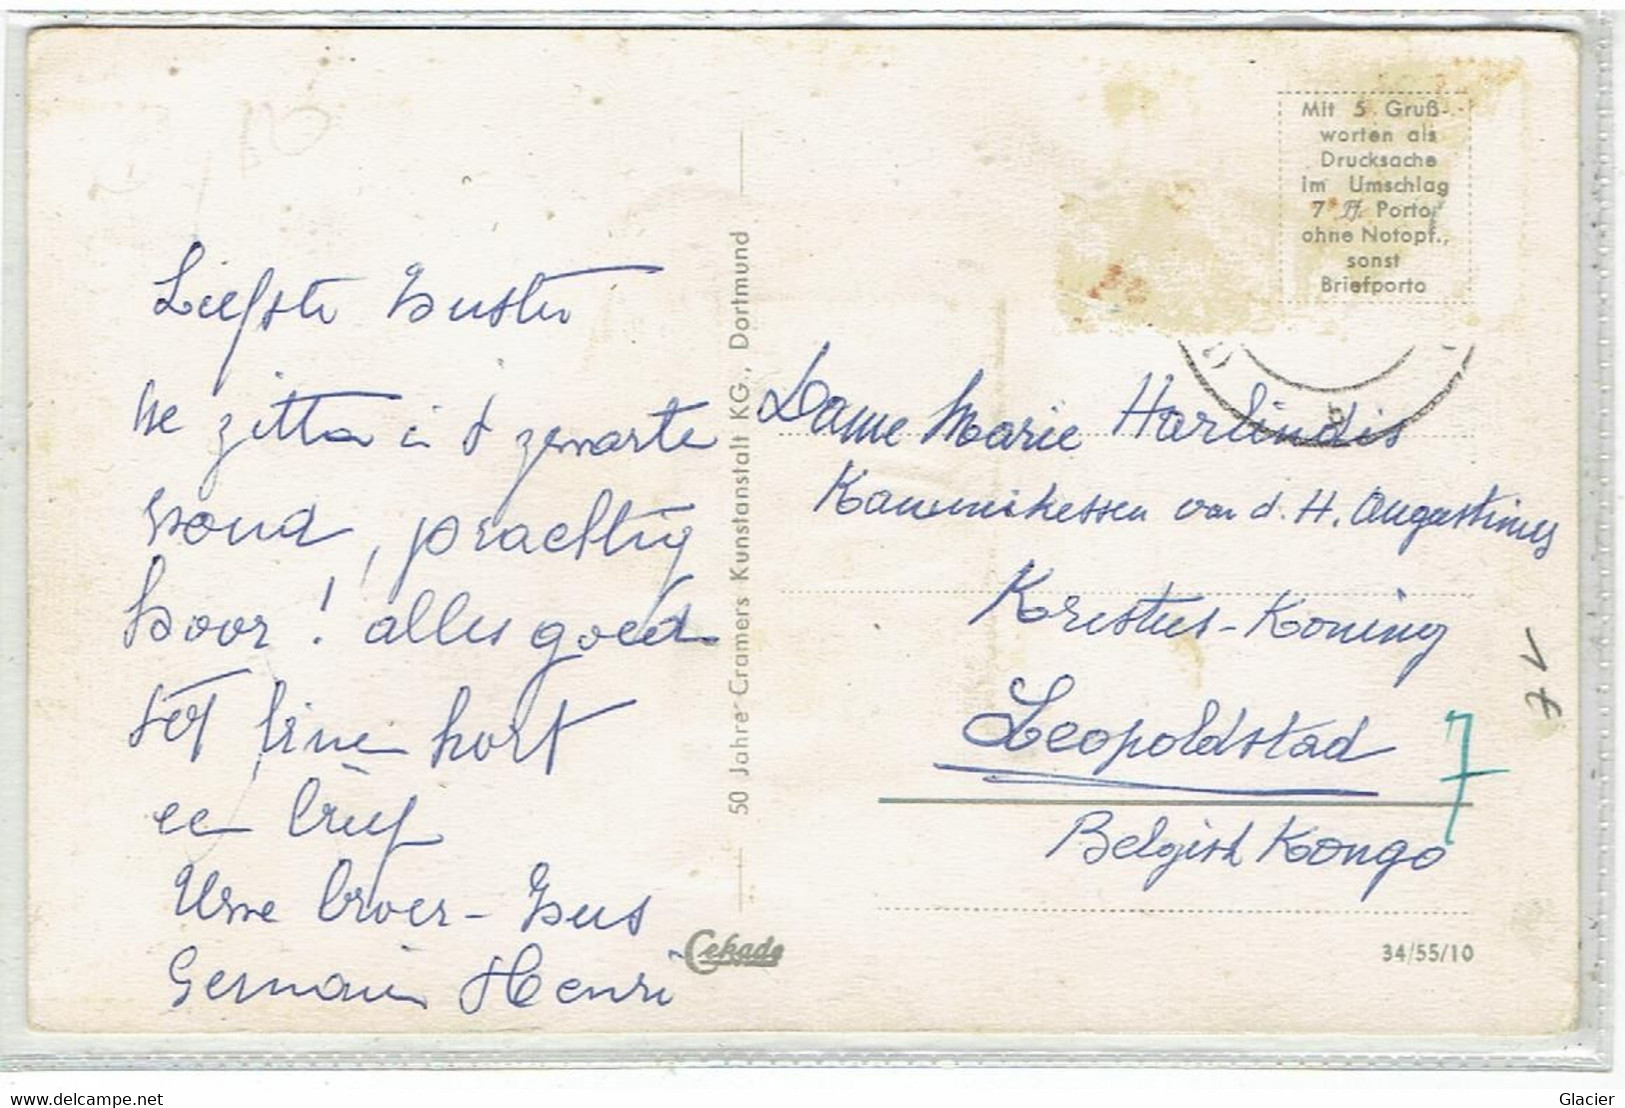 Liefste Zuster
We zitten in 't zwarte
woud, prachtig
hoor! alles goed
tot binnen kort
een brief
Uwe broer - Zus
Germain Henri
50 Jahre Cramers Kunstanstalt KG., Dortmund
Cekade
Mit 5 Gruß-
worten als
Drucksache
im Umschlag
7 Pf. Porto,
ohne Notopf.,
sonst
Briefporto
Dame Marie Harlindis
Kanunikessen van d. H. Augustinus
Kristus-Koning
Leopoldstad
Belgish Kongo
7
7V
34/55/10
www.delcampe.net
Glacier